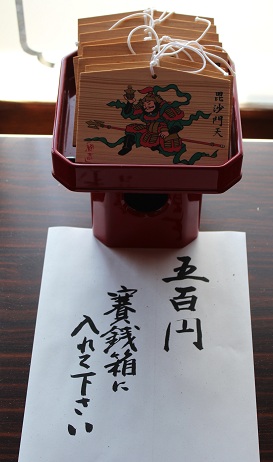 毘沙門天
五百円
賽銭箱に
入れて下さい